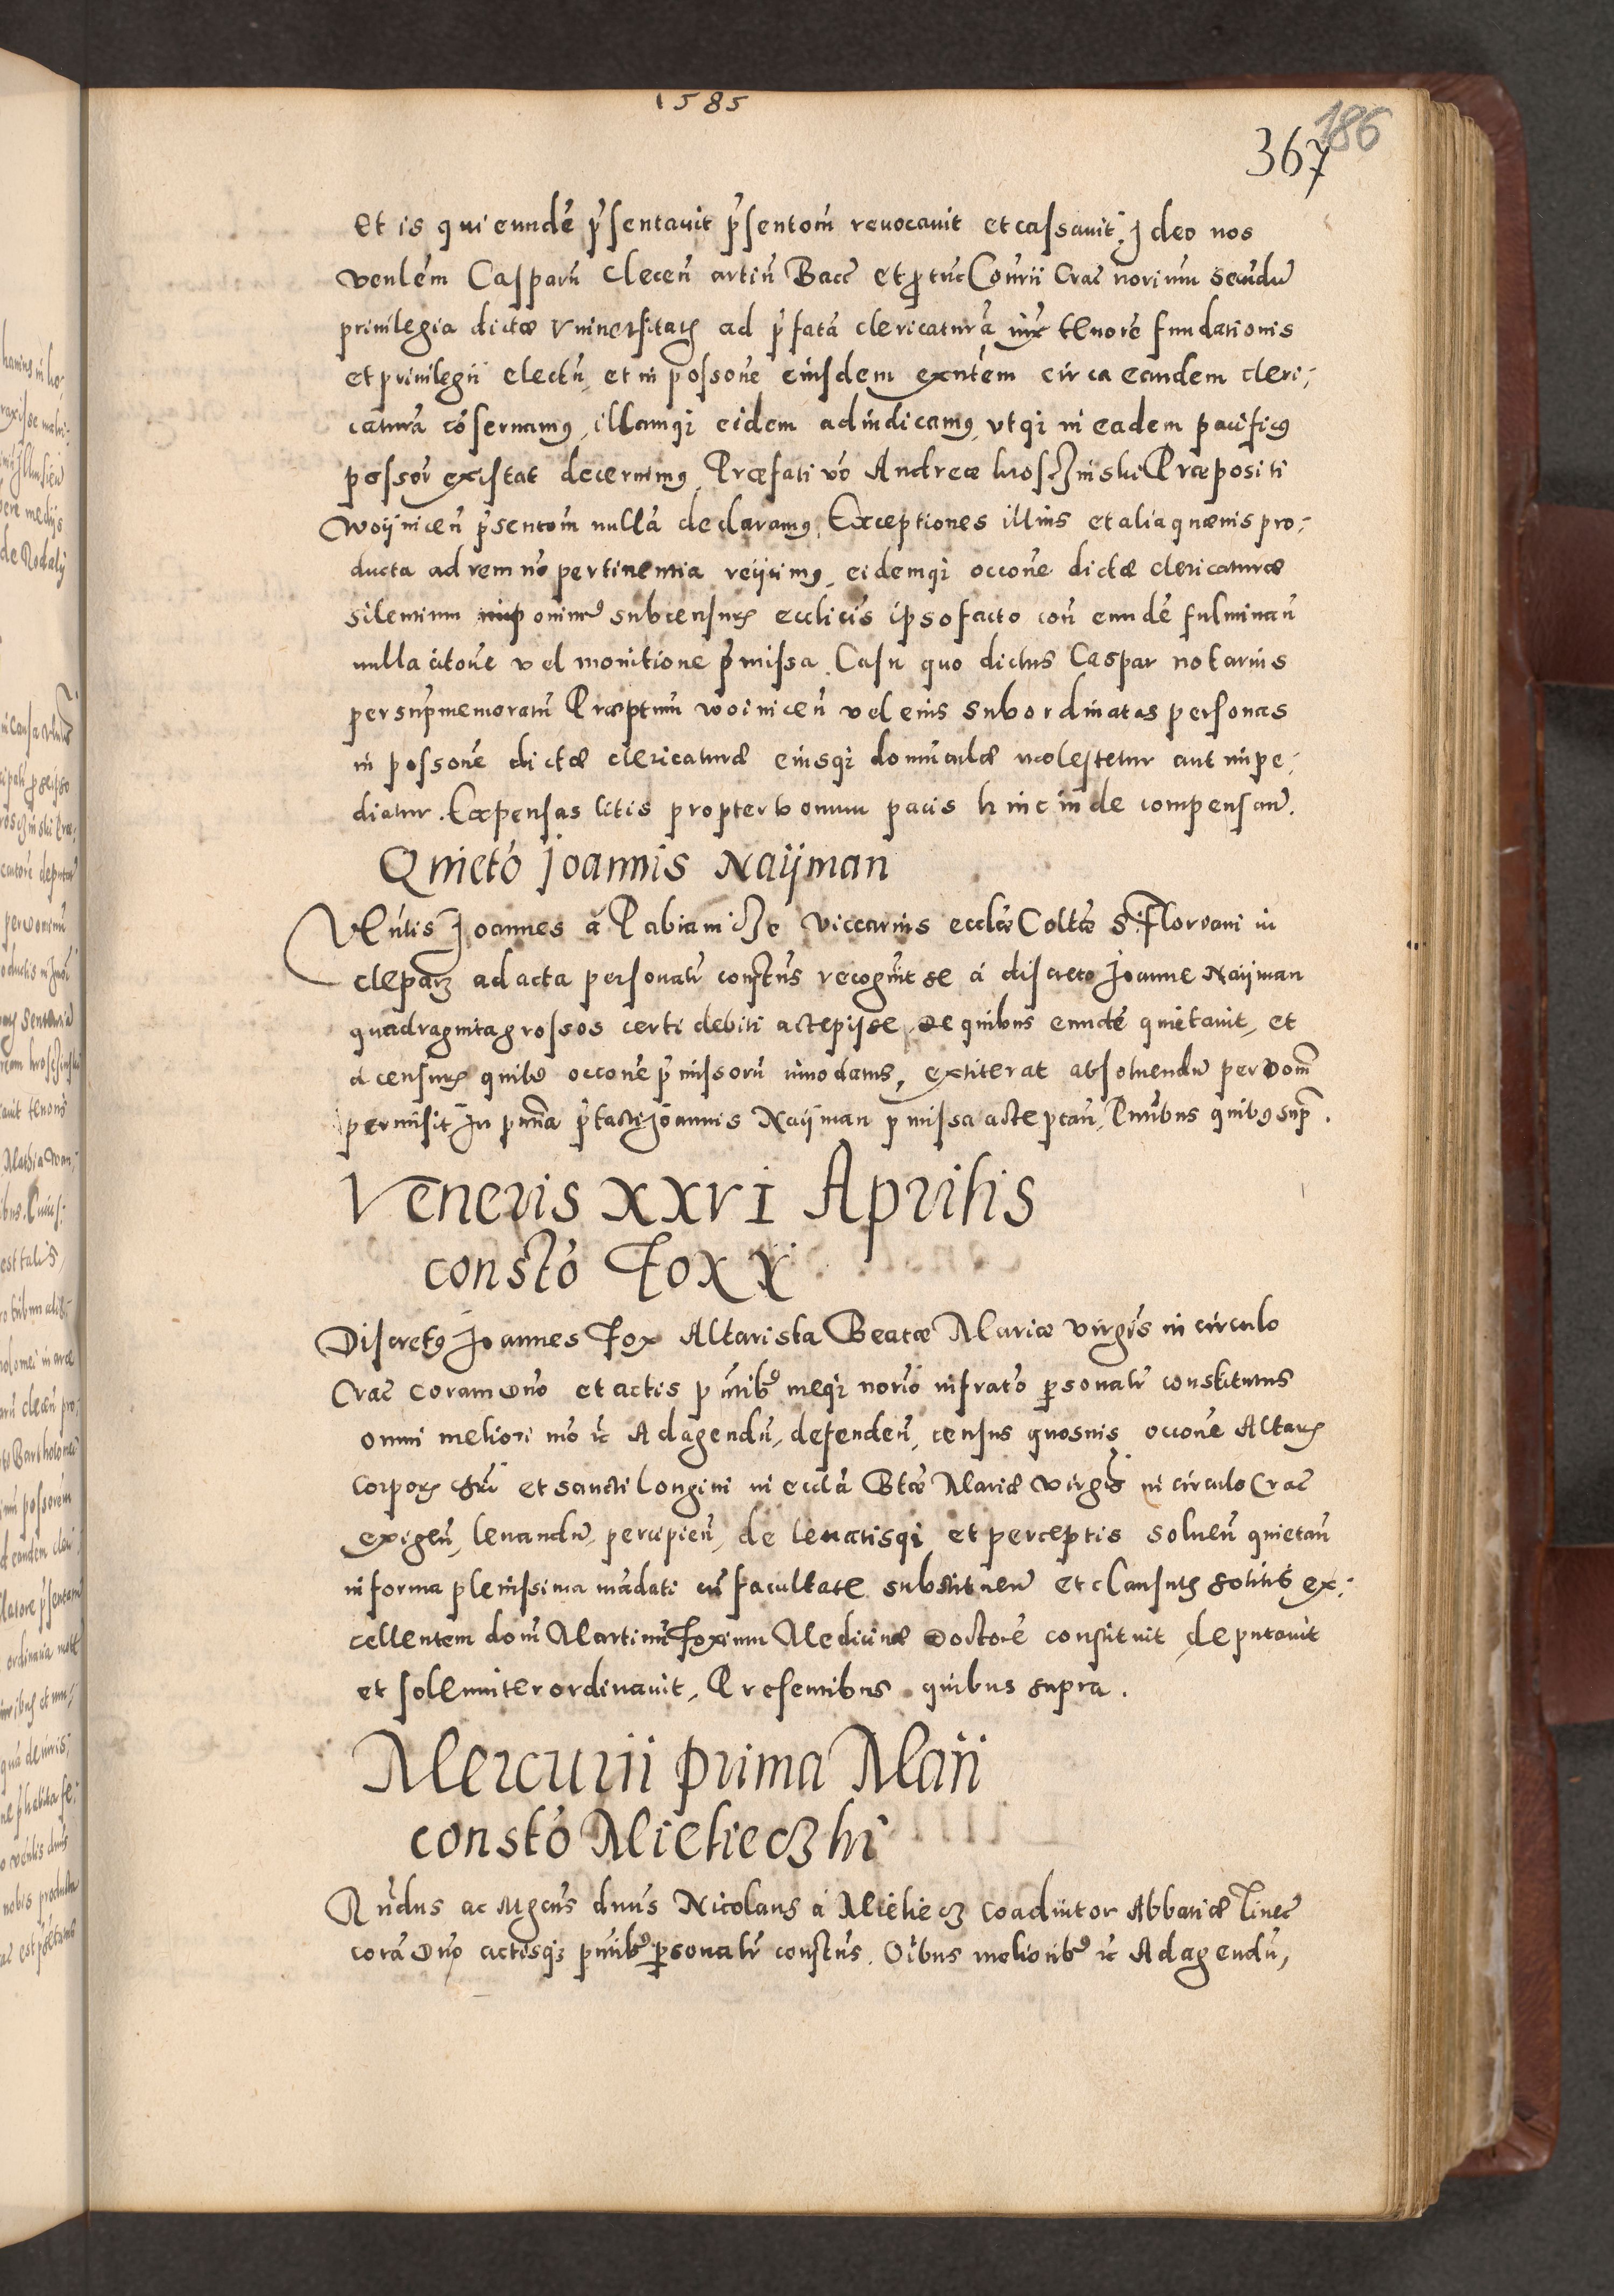 1585
186
367
et is qui eundē p̄sentauit p̄sentoīn reuocauit et cassauit, Ideo nos
venlēm Casparū Clecen̄ artiū Bacc̄ et p̱ tūc Cōurii Crac̄ norium secundū
priuilegia dictæ Vniuersitatꝭ ad p̄fatā clericaturā iux tenorē fundationis
et priuilegii electū, et in possone eiusdem exn̄tem circa eandem cleri;
caturā cōseruamꝰ, illamqꝫ eidem adiudicamꝰ, vtqꝫ in eadem pacificꝰ
possor̄ existat decernimꝰ, Præfati vō Andreæ hroscZinski Præpositi
Woÿnicen̄ p̄sentoīn nullā declaramꝰ, Exceptiones illius et alia quæuis pro;
ducta ad rem nō pertinentia reijcimꝰ, eidemqꝫ occone dictæ clericaturæ
silentium imponimꝰ sub censurꝭ ecclīcis ipso facto con̄ eundē fulminan̄
nulla citone vel monitione p̄missa. Casu quo dictus Caspar notarius
per sup̄memoratū Præptum woinicen̄ vel eius subordinatas personas
in possone dictæ clericaturæ eiusqꝫ domūculæ molestetur aut impe;
diatur. Expensas litis propter bonum pacis hinc inde compensan̄.
Quietō Joannis Naÿman
Vn̄lis Joannes á PabianicZe Viccarius ecclæ Coll̄tæ S. Floriani in
cleparꝫ ad acta personalr̄ constus̄ recogn̄it se á discreto Joanne Naÿman
quadraginta grossos certi debiti accepisse, De quibus eundē quietauit, et
á censurꝭ quibꝰ occone p̄missorū innodatus, extiterat absoluendū per Dom̄
permisit In pn̄tia p̄facti Joannis Naÿman p̄missa acceptan̄, Pn̄tibus quibꝰ sup̄.
Veneris XXVI Aprilis
constō Foxx
Discretꝰ Joannes Fox Altarista Beatæ Mariæ Virgīs in circulo
Crac̄ coram Dn̄o et actis pn̄tibꝰ meqꝫ norīo infratō p̱sonalr̄ constitutus
omni meliori mō ic̄ Ad agendū, defenden̄, census quosuis occone Altarꝭ
Corporꝭ Chrī et sancti Longini in ecclā Btæ Mariæ Virgīs in circulo Crac̄
exigen̄, leuandū percipien̄, de leuatisqꝫ et perceptis soluen̄ quietan̄
in forma plenissima mādati cū facultate substituen̄ et clausulꝭ solitis ex;
cellentem dom̄ Martinū Foxium Medicinæ Doctorē constituit, deputauit
et solemniter ordinauit, Presentibus quibus supra.
Mercurii prima Maii
constō MieliecZki
Rn̄dus ac Mgcūs dnūs Nicolaus á MieliecZ Coadiutor Abbatiæ Tinec̄
corā Dn̄o actisqꝫ pn̄tibꝰ p̱sonalr̄ constūs. Oībus melioribꝰ ic̄ Ad agendū,